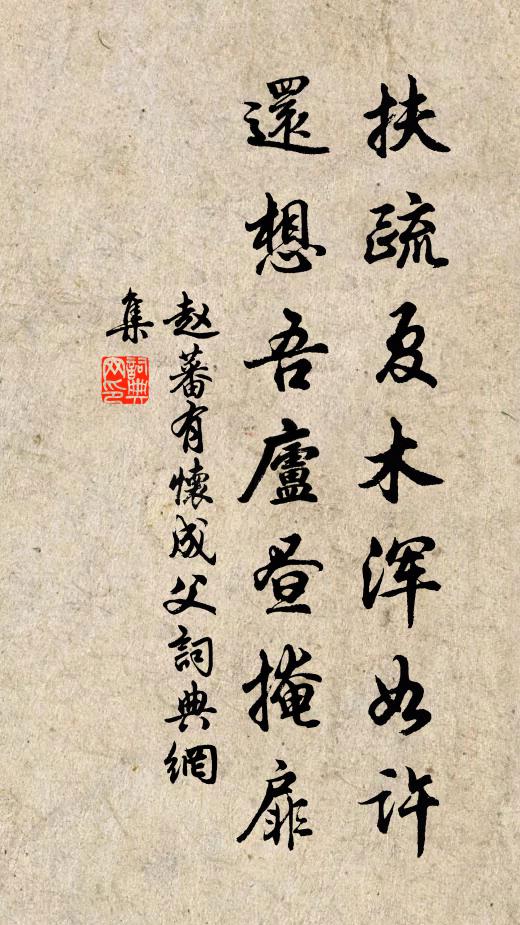 扶疏夏木浑如许
還想吾廬昼掩扉
赵蕃有懷成父詞典網
集
詞典
网印